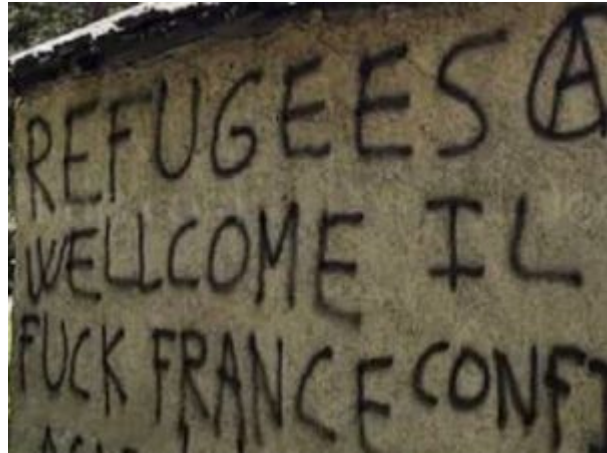 REFUGEES Ⓐ
WELLCOME IL
FUCK FRANCE CONF